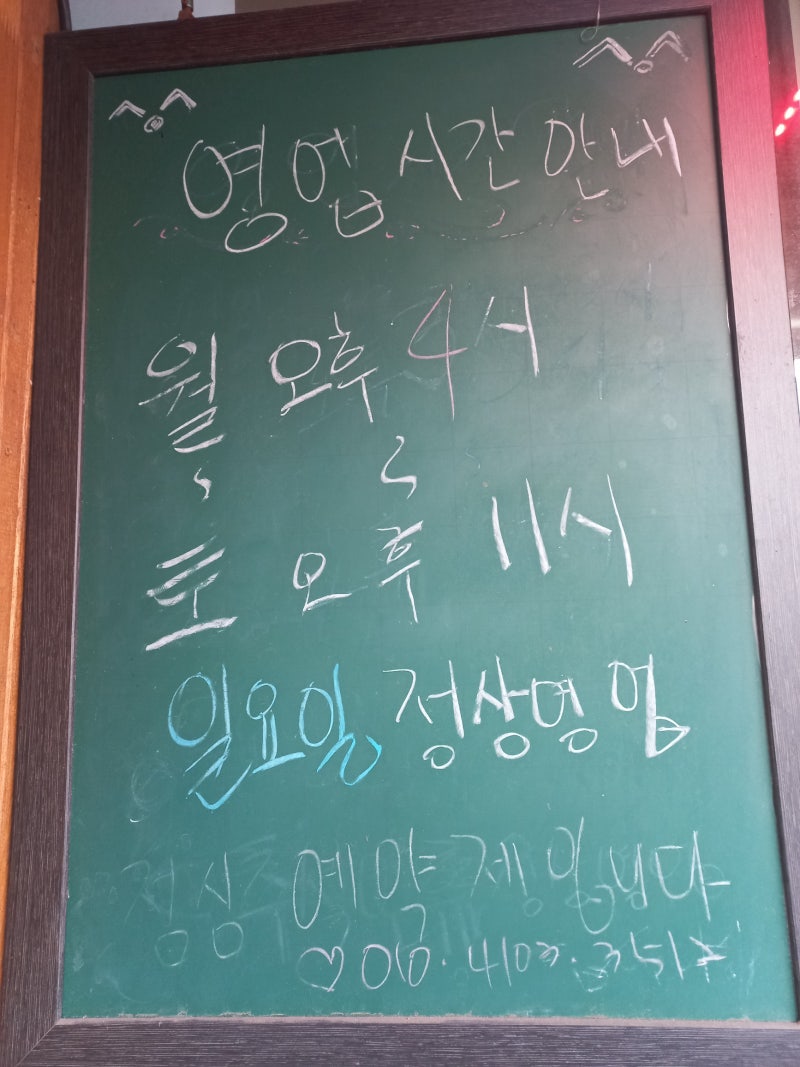 ^o^ ^o^
영업시간 안내
월 오후 4시
~ ~
토 오후 11시
일요일 정상영업
점심 예약제입니다
♡010.